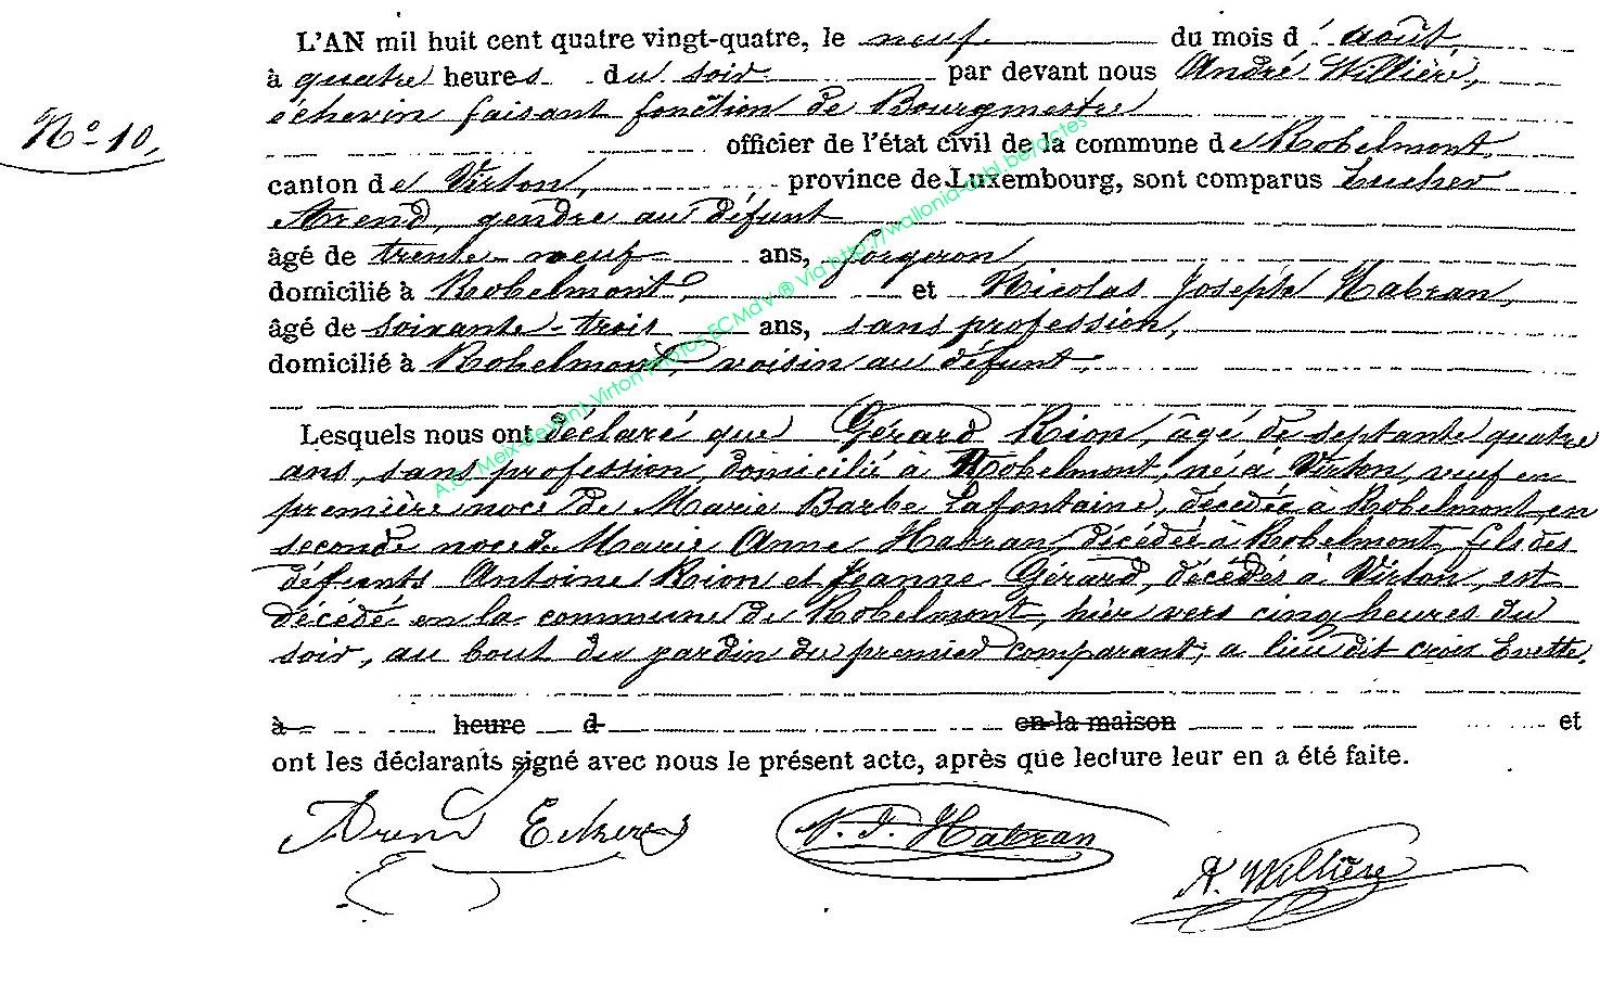 L'AN mil huit cent quatre vingt-quatre, le neuf du mois d'août,
à quatre heures du soir par devant nous André Willière,
échevin faisant fonction de Bourgmestre
N° 10,
officier de l'état civil de la commune de Robelmont,
canton de Virton, province de Luxembourg, sont comparus
Arend, gendre au défunt
âgé de trente-neuf ans, forgeron,
domicilié à Robelmont, et Nicolas Joseph Habran,
âgé de soixante-trois ans, sans profession,
domicilié à Robelmont, voisin au défunt;
Lesquels nous ont déclaré que Gérard Rion, âgé de septante quatre
ans, sans profession, domicilié à Robelmont, né à Virton, veuf en
première noce de Marie Barbe Lafontaine, décédée à Robelmont, en
seconde noce de Marie Anne Habran, décédée à Robelmont, fils des
défunts Antoine Rion et Jeanne Gérard, décédés à Virton, est
décédé en la commune de Robelmont, hier vers cinq heures du
soir, au bout du jardin du premier comparant, a lieu dit croix Evette.
à heure d en la maison et
ont les déclarants signé avec nous le présent acte, après que lecture leur en a été faite.
Arend N. J. Habran
A. Willière
A.C. Meix-devant-Virton Photos ECMdV ® Via http://wallonia-asbl.be/actes